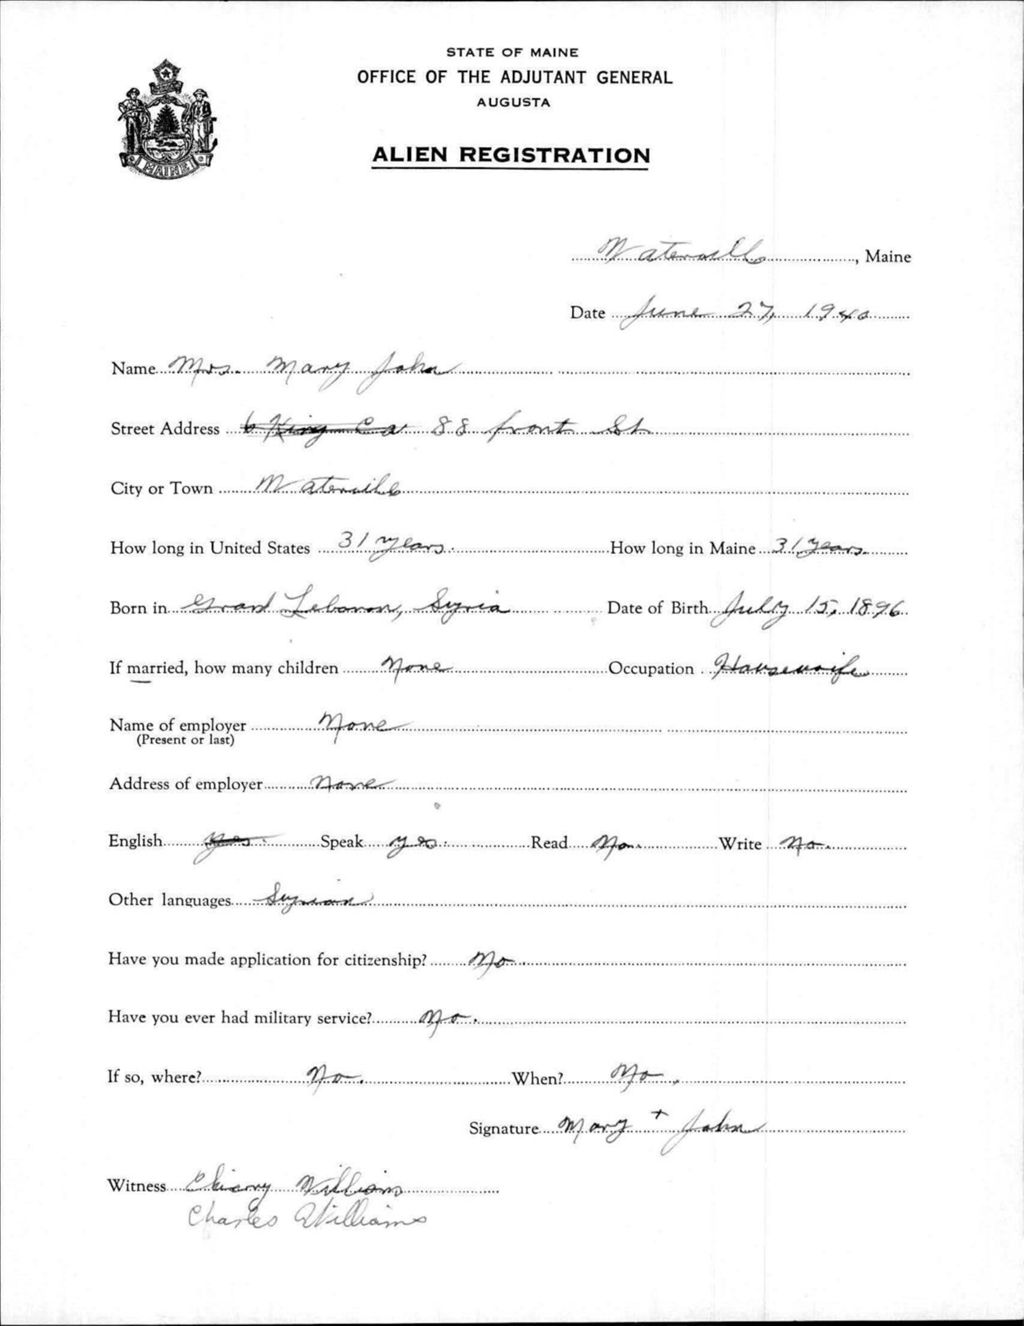 STATE OF MAINE
OFFICE OF THE ADJUTANT GENERAL
AUGUSTA
ALIEN REGISTRATION
MAINE
Waterville, Maine
Date June 27, 1940
Name Mrs. Mary John
Street Address 6 King Ct 88 front St.
City or Town Waterville
How long in United States 31 years. How long in Maine 31 years.
Born in Lebanon, Syria Date of Birth July 15, 1896
If married, how many children None Occupation Housewife
Name of employer None
(Present or last)
Address of employer None
English yes. Speak yes. Read No. Write No.
Other languages Syrian
Have you made application for citizenship? No.
Have you ever had military service? No.
If so, where? No. When? No.
Signature Mary + John
Witness Williams
Charles Williams